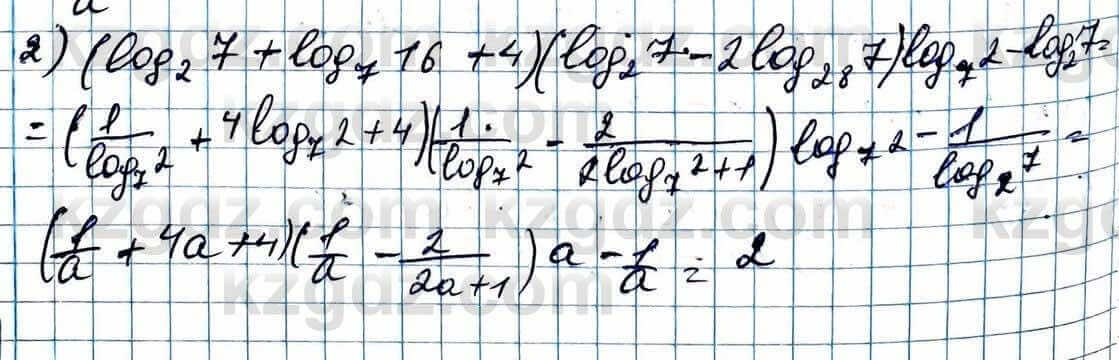 2) (log₂ 7 + log₇ 16 + 4)(log₂ 7 - 2 log₂₈ 7) log₇ 2 - log₂ 7 =
= (1/log₇ 2 + 4 log₇ 2 + 4)(1/log₇ 2 - 2/(2 log₇ 2 + 1)) log₇ 2 - 1/log₂ 7 =
(1/a + 4a + 4)(1/a - 2/(2a + 1)) a - 1/a = 2
kzgdz.com kzgdz.com kzgdz.com